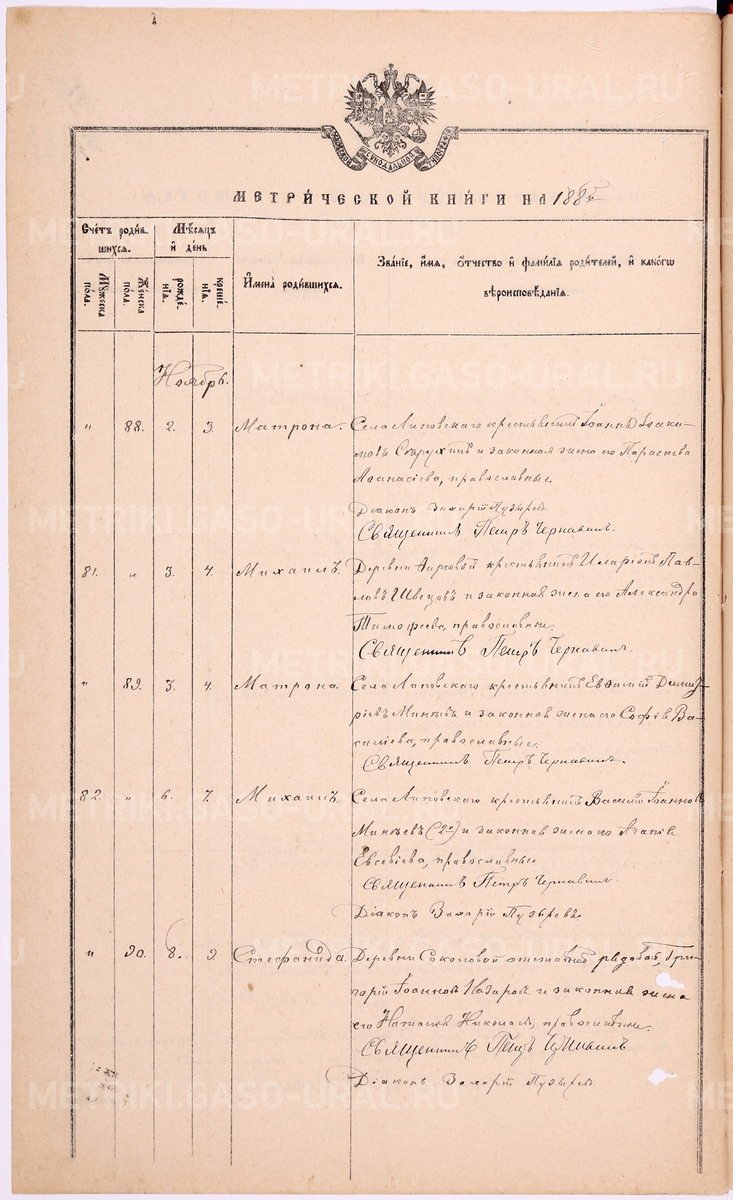 МЕТРИ́ЧЕСКОЙ КНИ́ГИ НА 188
Счетъ роди́в
шихся.
Мѣсяцъ
и҆ де́нь
И҆мена̀ роди́вшихся.
Зва́нїе, и҆́мя, ѻ҆́тчество и҆ фами́лїя роди́телей, и҆ како́гѡ
вѣроисповѣ́данїя.
Му́жеска
по́ла.
Же́нска
по́ла.
рожде́
нїя.
креще́
нїя.
Ноябрь.
" 88. 2. 3. Матрона. Села Липовскаго крестьянинъ Іоаннъ Іоаки-
мовъ и законная жена его Параскева
Аѳанасіева, православные.
Діаконъ Захарій Пузыревъ
Священникъ Петръ Чернавинъ.
81. " 3. 4. Михаилъ. Деревни крестьянинъ Иларіонъ Пав-
ловъ Швецовъ и законная жена его Александра
Тимофеева, православные.
Священникъ Петръ Чернавинъ.
" 89. 3. 4. Матрона. Села Липовскаго крестьянинъ Евѳимій Димит-
ріевъ Минѣевъ и законная жена его Софія Ва-
силіева, православные.
Священникъ Петръ Чернавинъ.
82. " 6. 7. Михаилъ. Села Липовскаго крестьянинъ Василій Іоанновъ
Минѣевъ (2й) и законная жена его Агапія
Евсевіева, православные
Священникъ Петръ Чернавинъ.
Діаконъ Захарій Пузыревъ.
" 90. 8. 9. Стефанида. Деревни Соколовой рядовой Гри-
горій Іоанновъ Назаровъ и законная жена
его Наталія Николаева, православные.
Священникъ Петръ Чернавинъ
Діаконъ Захарій Пузыревъ.
METRIKI.GASO-URAL.RU